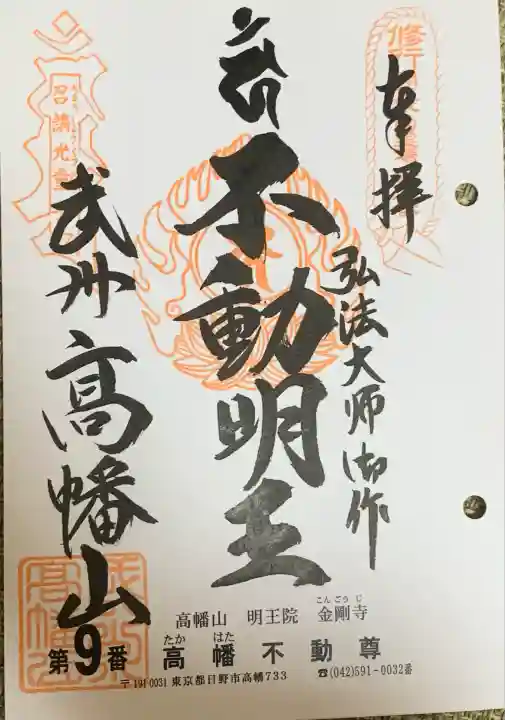 奉拝
弘法大師御作
不動明王
武州高幡山
召請光
高幡山 明王院 金剛寺
こんごうじ
第9番
高幡不動尊
たか はた
〒191-0031 東京都日野市高幡733
☎(042)591-0032番